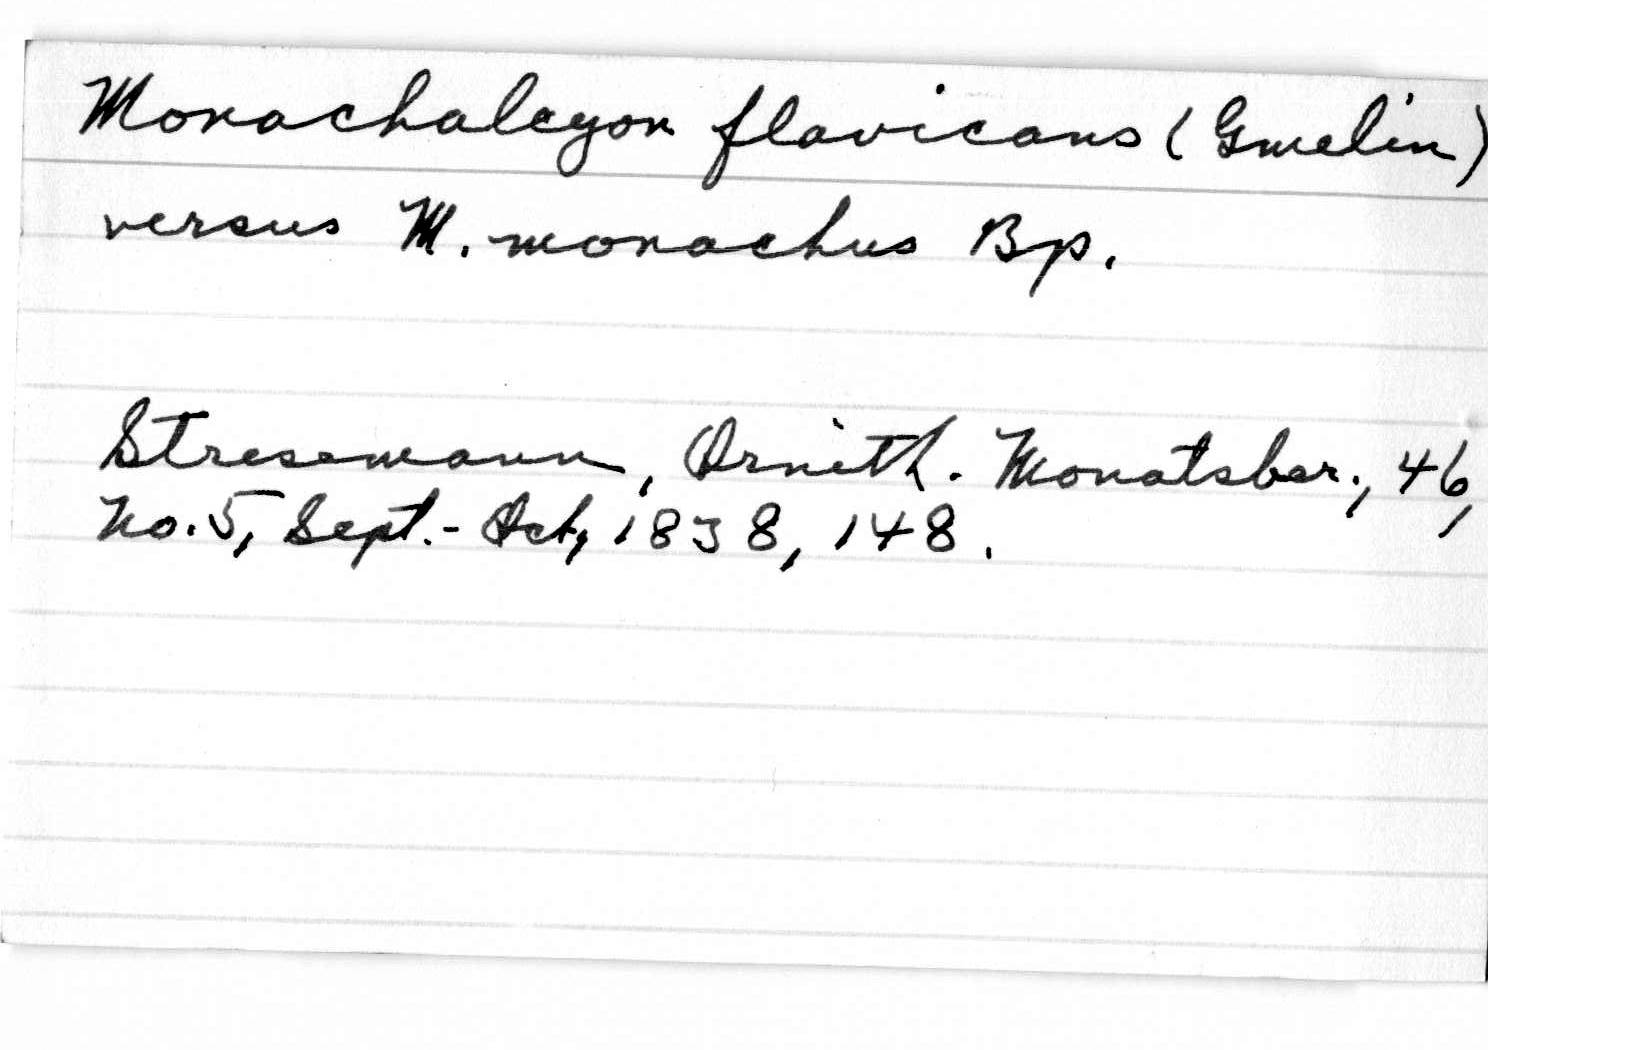 Monachalcyon flavicans (Gmelin)
versus M. monachus Bp.
Stresemann, Ornith. Monatsber., 46,
No. 5, Sept.-Oct, 1838, 148.